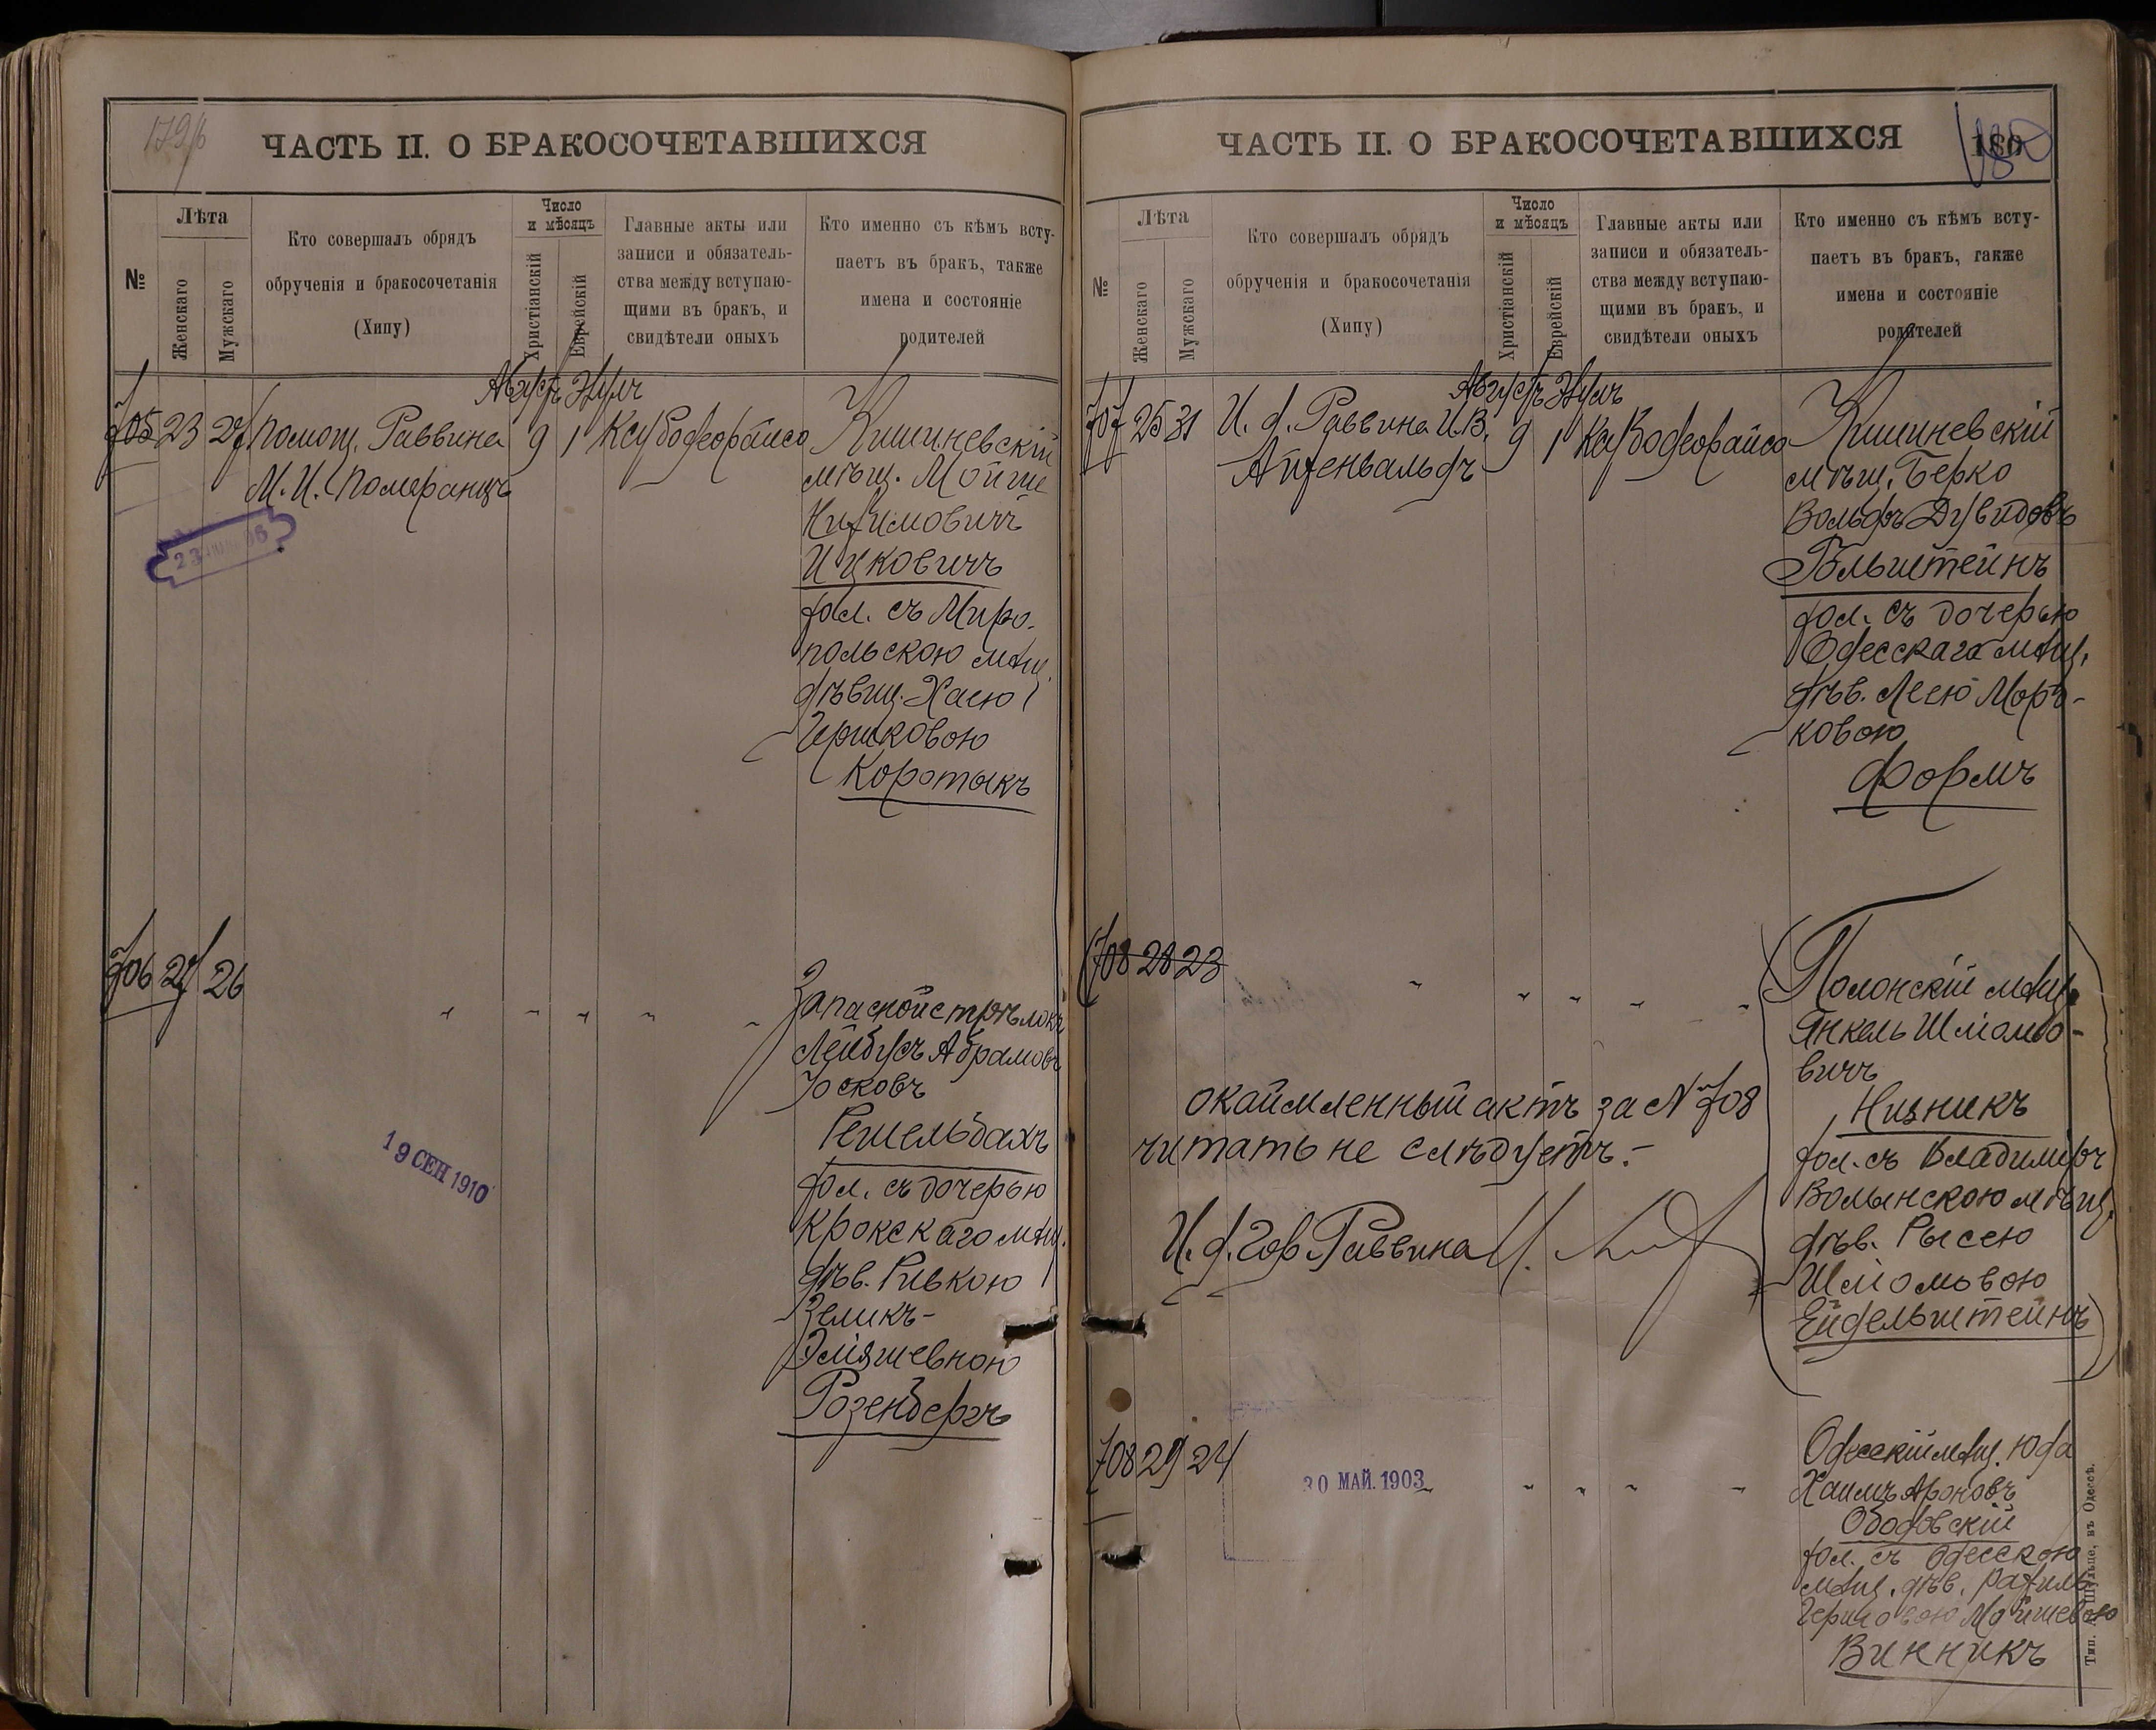 179/б
ЧАСТЬ II. О БРАКОСОЧЕТАВШИХСЯ
№
Лѣта
Женскаго
Мужскаго
Кто совершалъ обрядъ
обрученія и бракосочетанія
(Хипу)
Число
и мѣсяцъ
Христіанскій
Еврейскій
Главные акты или
записи и обязатель-
ства между вступаю-
щими въ бракъ, и
свидѣтели оныхъ
Кто именно съ кѣмъ всту-
паетъ въ бракъ, также
имена и состояніе
родителей
Августъ Элулъ
705 23 27 Помощ. Раввина 9 1
М. И. Померанцъ
Кишиневскій
мѣщ. Мойше
Нихимовичъ
Ицковичъ
хол. съ Миро-
польскою мѣщ.
дѣвиц. Хасею
Гершковою
Коротыкъ
706 27 26
Запасной стрѣлокъ
Лейбусъ Абрамовъ
Іосковъ
Гешельбахъ
хол. съ дочерью
Крокскаго мѣщ.
дѣв. Ривкою
Зеликъ-
Эліяшевною
Розенбергъ
19 СЕН 1910
ЧАСТЬ II. О БРАКОСОЧЕТАВШИХСЯ
180
№
Лѣта
Женскаго
Мужскаго
Кто совершалъ обрядъ
обрученія и бракосочетанія
(Хипу)
Число
и мѣсяцъ
Христіанскій
Еврейскій
Главные акты или
записи и обязатель-
ства между вступаю-
щими въ бракъ, и
свидѣтели оныхъ
Кто именно съ кѣмъ всту-
паетъ въ бракъ, также
имена и состояніе
родителей
Августъ Элулъ
707 25 31 И. д. Раввина И. В. 9 1
Айзенвальдъ
Кишиневскій
мѣщ. Берко
Вольфъ Дувидовъ
Гольштейнъ
хол. съ дочерью
Одесскаго мѣщ.
дѣв. Леею Морд-
ковою
Формъ
708 28 23
Полонскій мѣщ.
Янкель Шліомо-
вичъ
Низникъ
хол. съ Владиміръ
Волынскою мѣщ.
дѣв. Рысею
Шліомовою
Ейдельштейнъ
окаймленный актъ за № 708
читать не слѣдуетъ.-
И. д. Гор. Раввина
708 29 24
30 МАЙ. 1903
Одесскій мѣщ. Юда
Хаимъ Ароновъ
Ободовскій
хол. съ Одесскою
мѣщ. дѣв. Рахиль
Мойшевою
Винникъ
Тип. А. Шульце, въ Одессѣ.